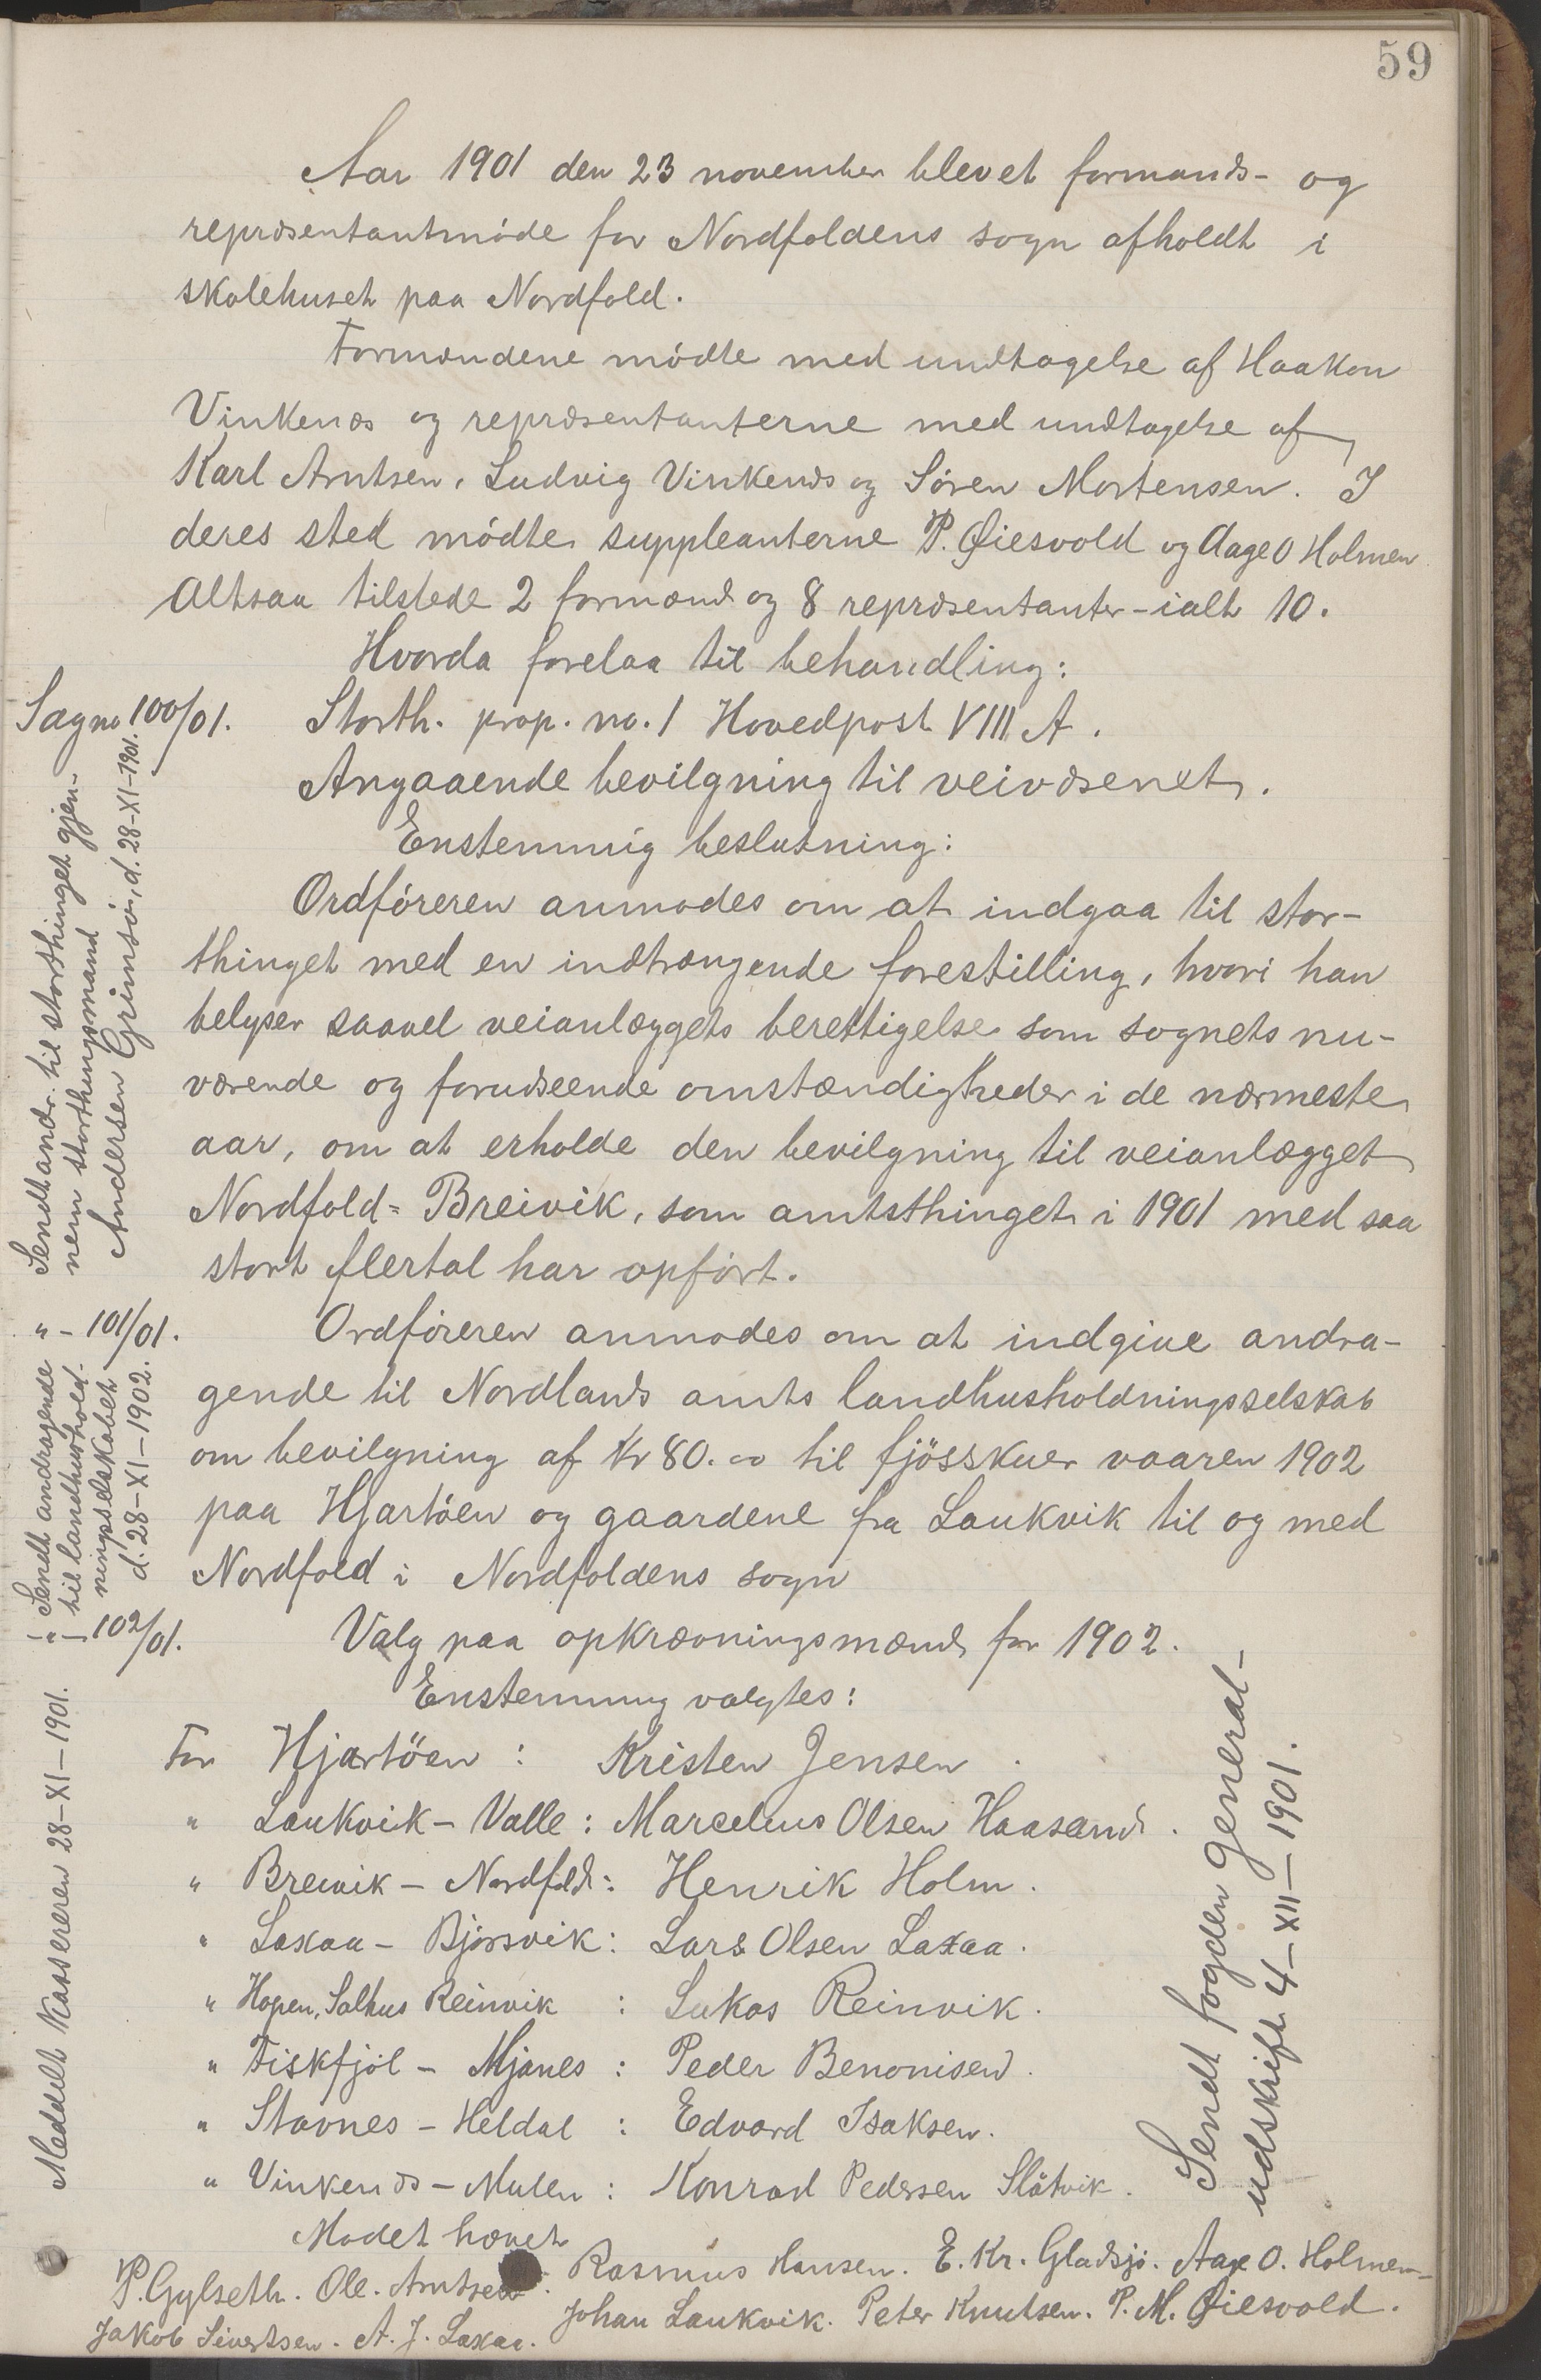 59
Aar 1901 den 23 november blevet formands- og
repræsentantmöde for Nordfoldens sogn afholdt i
skolehuset paa Nordfold.
Formændene mödte med undtagelse af Haakon
Vinkenæs og repræsentanterne med undtagelse af
Karl Arntsen, Ludvig Vinkenæs og Sören Mortensen. I
deres sted mödte suppleanterne P. Øiesvold og Aage O Holmen
Altsaa tilstede 2 formænd og 8 repræsentanter - ialt 10.
Hvorda forelaa til behandling:
Sag no 100/01. Storth. prop. no. 1 Hovedpost VIII A.
Angaaende bevilgning til veivæsenet.
Enstemmig beslutning:
Ordföreren anmodes om at indgaa til stor-
thinget med en indtrængende forestilling, hvori han
belyser saavel veianlæggets berettigelse som sognets nu-
værende og forudseende omstændigheder i de nærmeste
aar, om at erholde den bevilgning til veianlægget
Nordfold= Breivik, som amtsthinget i 1901 med saa
stort flertal har opfört.
Sendt andr. til storthinget gjen-
nem storthingsmand
Andersen Grimsöi, d. 28-XI-1901.
" - 101/01. Ordföreren anmodes om at indgive andra-
gende til Nordlands amts landhusholdningsselskab
om bevilgning af Kr 80.00 til fjösskuer vaaren 1902
paa Hjartöen og gaardene fra Laukvik til og med
Nordfold i Nordfoldens sogn
Sendt andragende
til landhushold-
ningsselskabet
d. 28-XI-1902.
" 102/01. Valg paa opkrævningsmænd for 1902.
Enstemmig valgtes:
For Hjartöen : Kristen Jensen.
" Laukvik - Valle : Marcelius Olsen Haasand.
" Breivik - Nordfold : Henrik Holm.
" Laxaa - Björsvik : Lars Olsen Laxaa.
" Hopen, Salhus Reinvik : Lukas Reinvik.
" Fiskfjöl - Mjanes : Peder Benonisen.
" Stavnes - Heldal : Edvard Isaksen.
" Vinkenæs - Mulen : Konrad Pedersen Slåtvik.
Meddelt Kassereren 28-XI-1901.
Sendt fogden general-
udskrift 4-XII-1901.
Mödet hævet
P. Gylseth. Ole. Arntsen. Rasmus Hansen. E. Kr. Gladsjö. Aage O. Holmen
Jakob Sivertsen. A. J. Laxaa. Johan Laukvik. Peter Knutsen. P. M. Øiesvold.